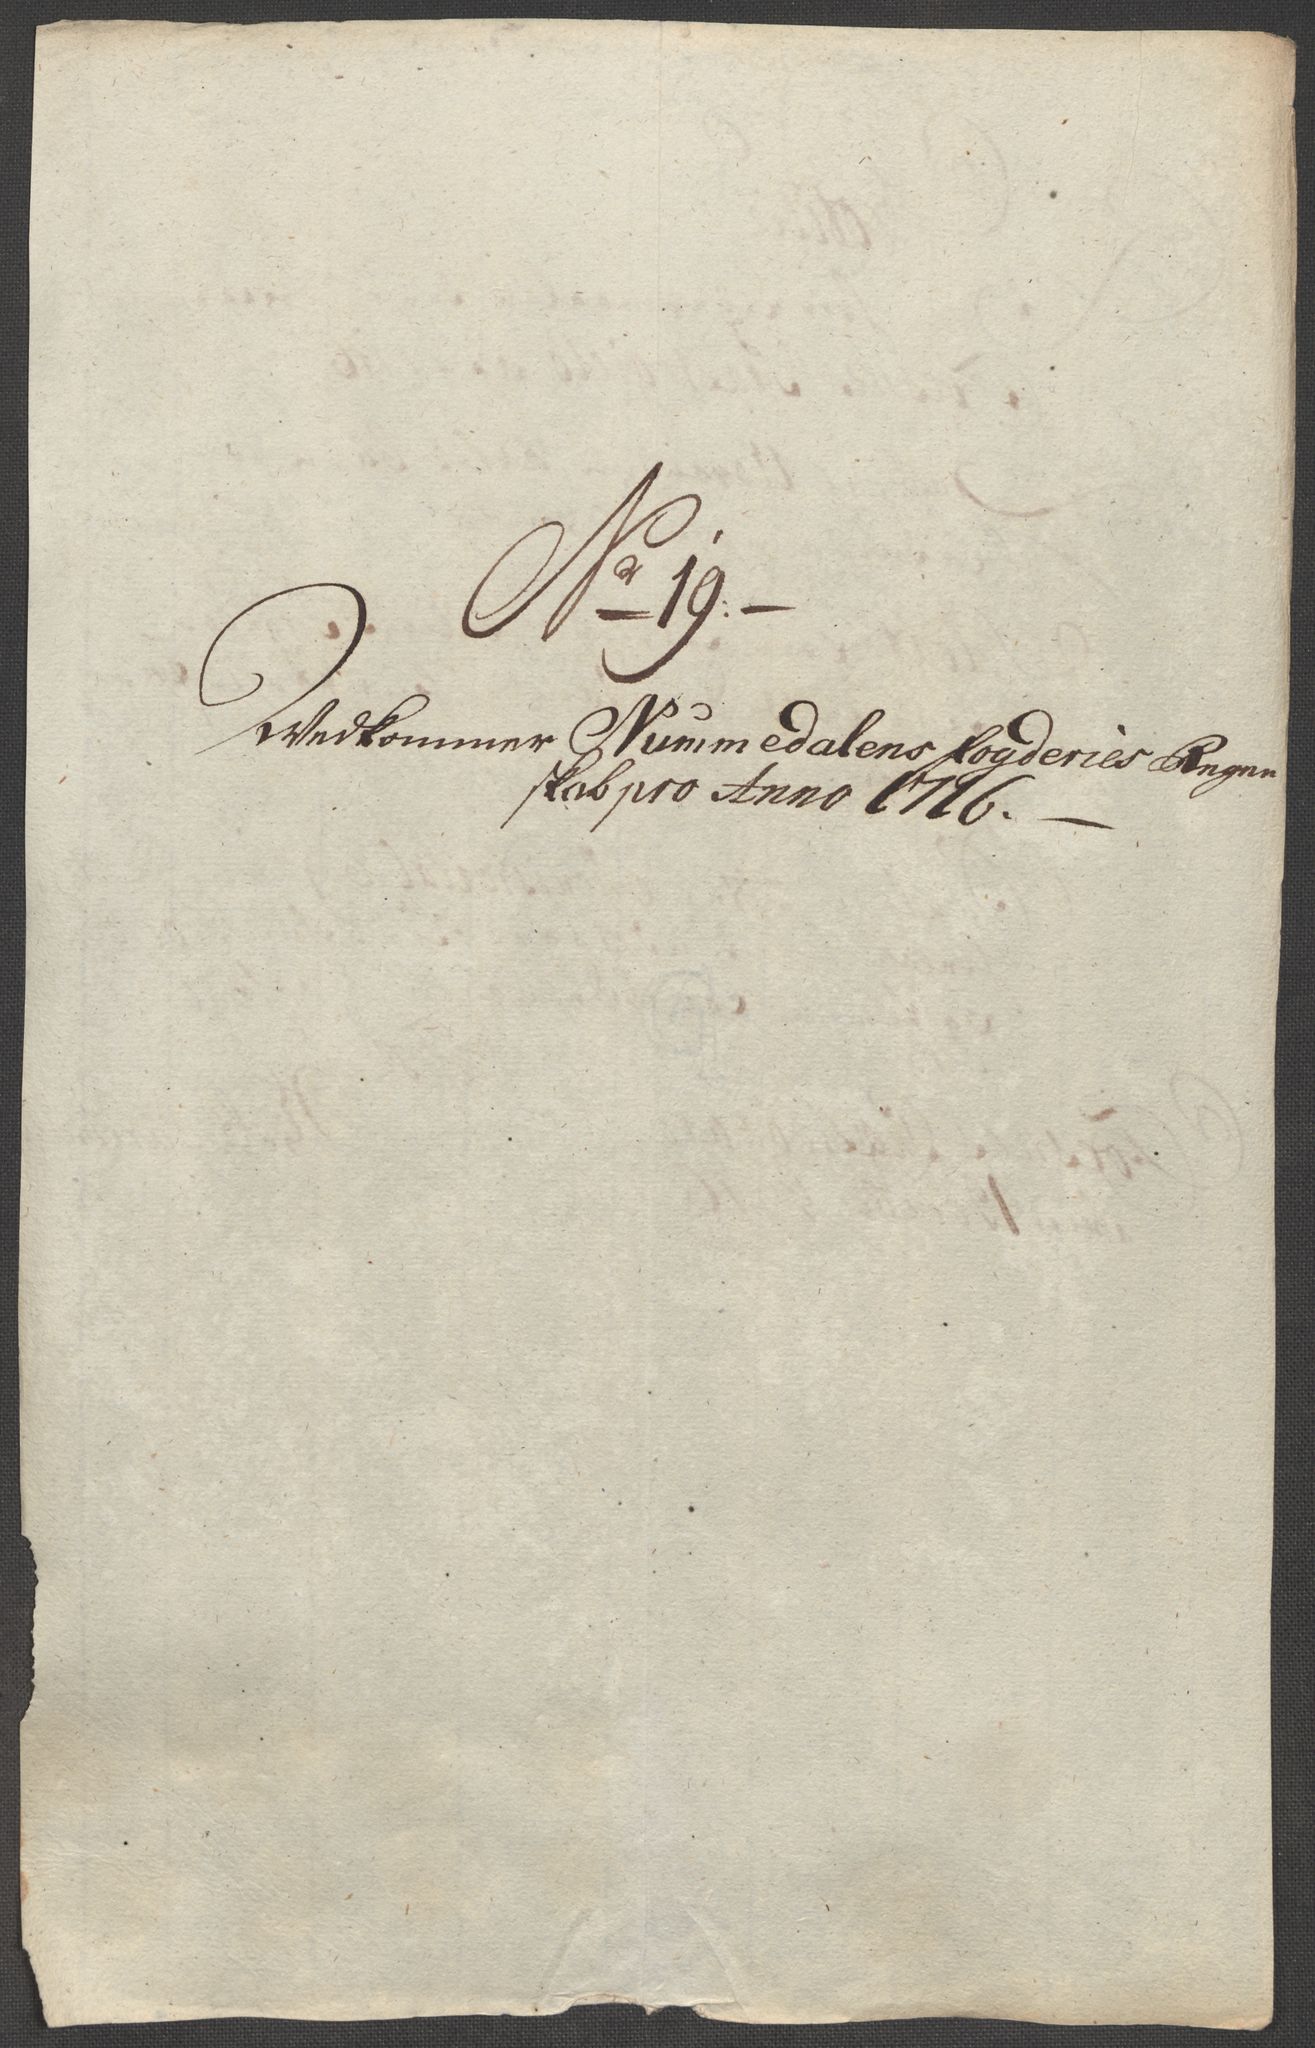 No 19.
Wedkommer Nummedalens fogderies Regen
skab pro Anno 1716.